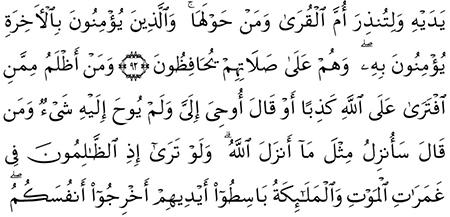 يَدَيْهِ وَلِتُنذِرَ أُمَّ ٱلْقُرَىٰ وَمَنْ حَوْلَهَا ۚ وَٱلَّذِينَ يُؤْمِنُونَ بِٱلْـَٔاخِرَةِ
يُؤْمِنُونَ بِهِۦ ۖ وَهُمْ عَلَىٰ صَلَاتِهِمْ يُحَافِظُونَ ﴿٩٢﴾ وَمَنْ أَظْلَمُ مِمَّنِ
ٱفْتَرَىٰ عَلَى ٱللَّهِ كَذِبًا أَوْ قَالَ أُوحِىَ إِلَىَّ وَلَمْ يُوحَ إِلَيْهِ شَىْءٌ وَمَن
قَالَ سَأُنزِلُ مِثْلَ مَآ أَنزَلَ ٱللَّهُ ۗ وَلَوْ تَرَىٰٓ إِذِ ٱلظَّـٰلِمُونَ فِى
غَمَرَٰتِ ٱلْمَوْتِ وَٱلْمَلَـٰٓئِكَةُ بَاسِطُوٓا۟ أَيْدِيهِمْ أَخْرِجُوٓا۟ أَنفُسَكُمُ ۖ